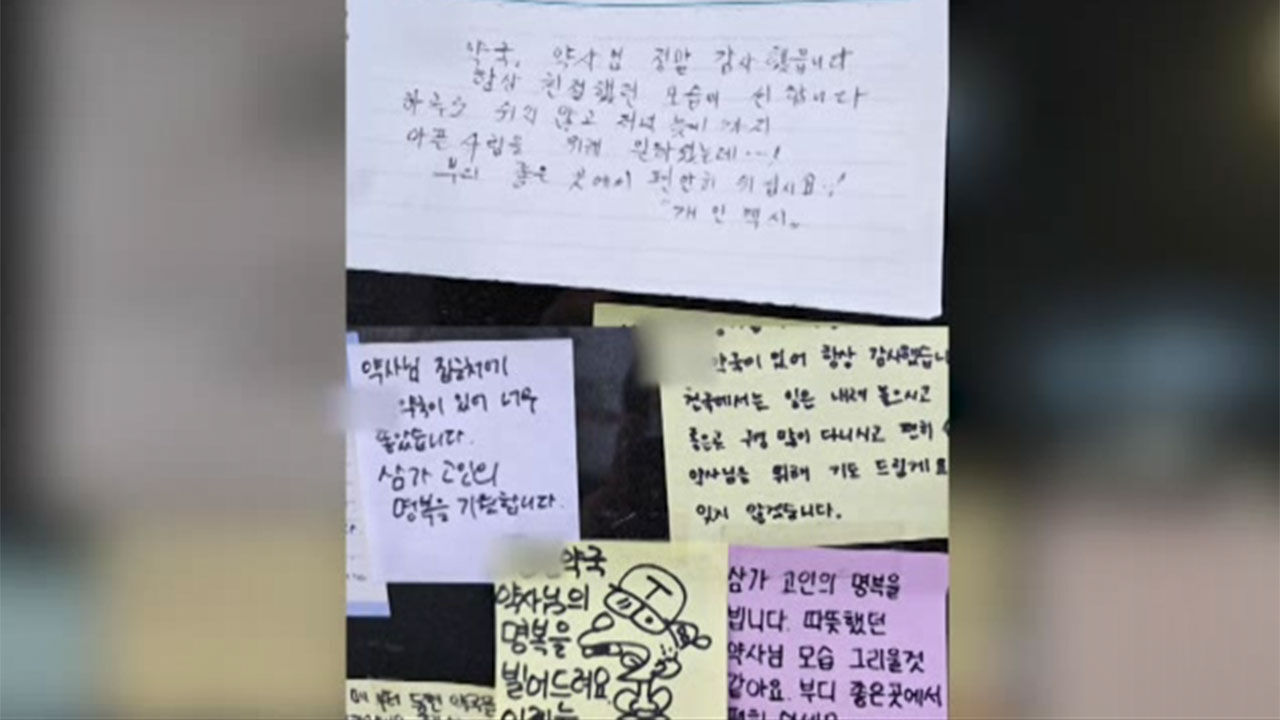 약국, 약사님 정말 감사했읍니다
항상 친절했던 모습이 선합니다
하루도 쉬지 않고 저녁 늦게 까지
아픈 사람을 위해 일하셨는데…!
부디 좋은 곳에서 편안히 쉬십시요!
"개인택시"
약사님 집근처에
약국이 있어 너무
좋았습니다.
삼가 고인의
명복을 기원합니다.
약국이 있어 항상 감사했습니
천국에서는 일은 내려 놓으시고
좋은곳 구경 많이 다니시고 편히
약사님을 위해 기도 드릴게요
잊지 않겠습니다.
약국
약사님의
명복을
빌어드려요
이제는
T
삼가 고인의 명복을
빕니다. 따뜻했던
약사님 모습 그리울것
같아요. 부디 좋은곳에서
편히
약국을